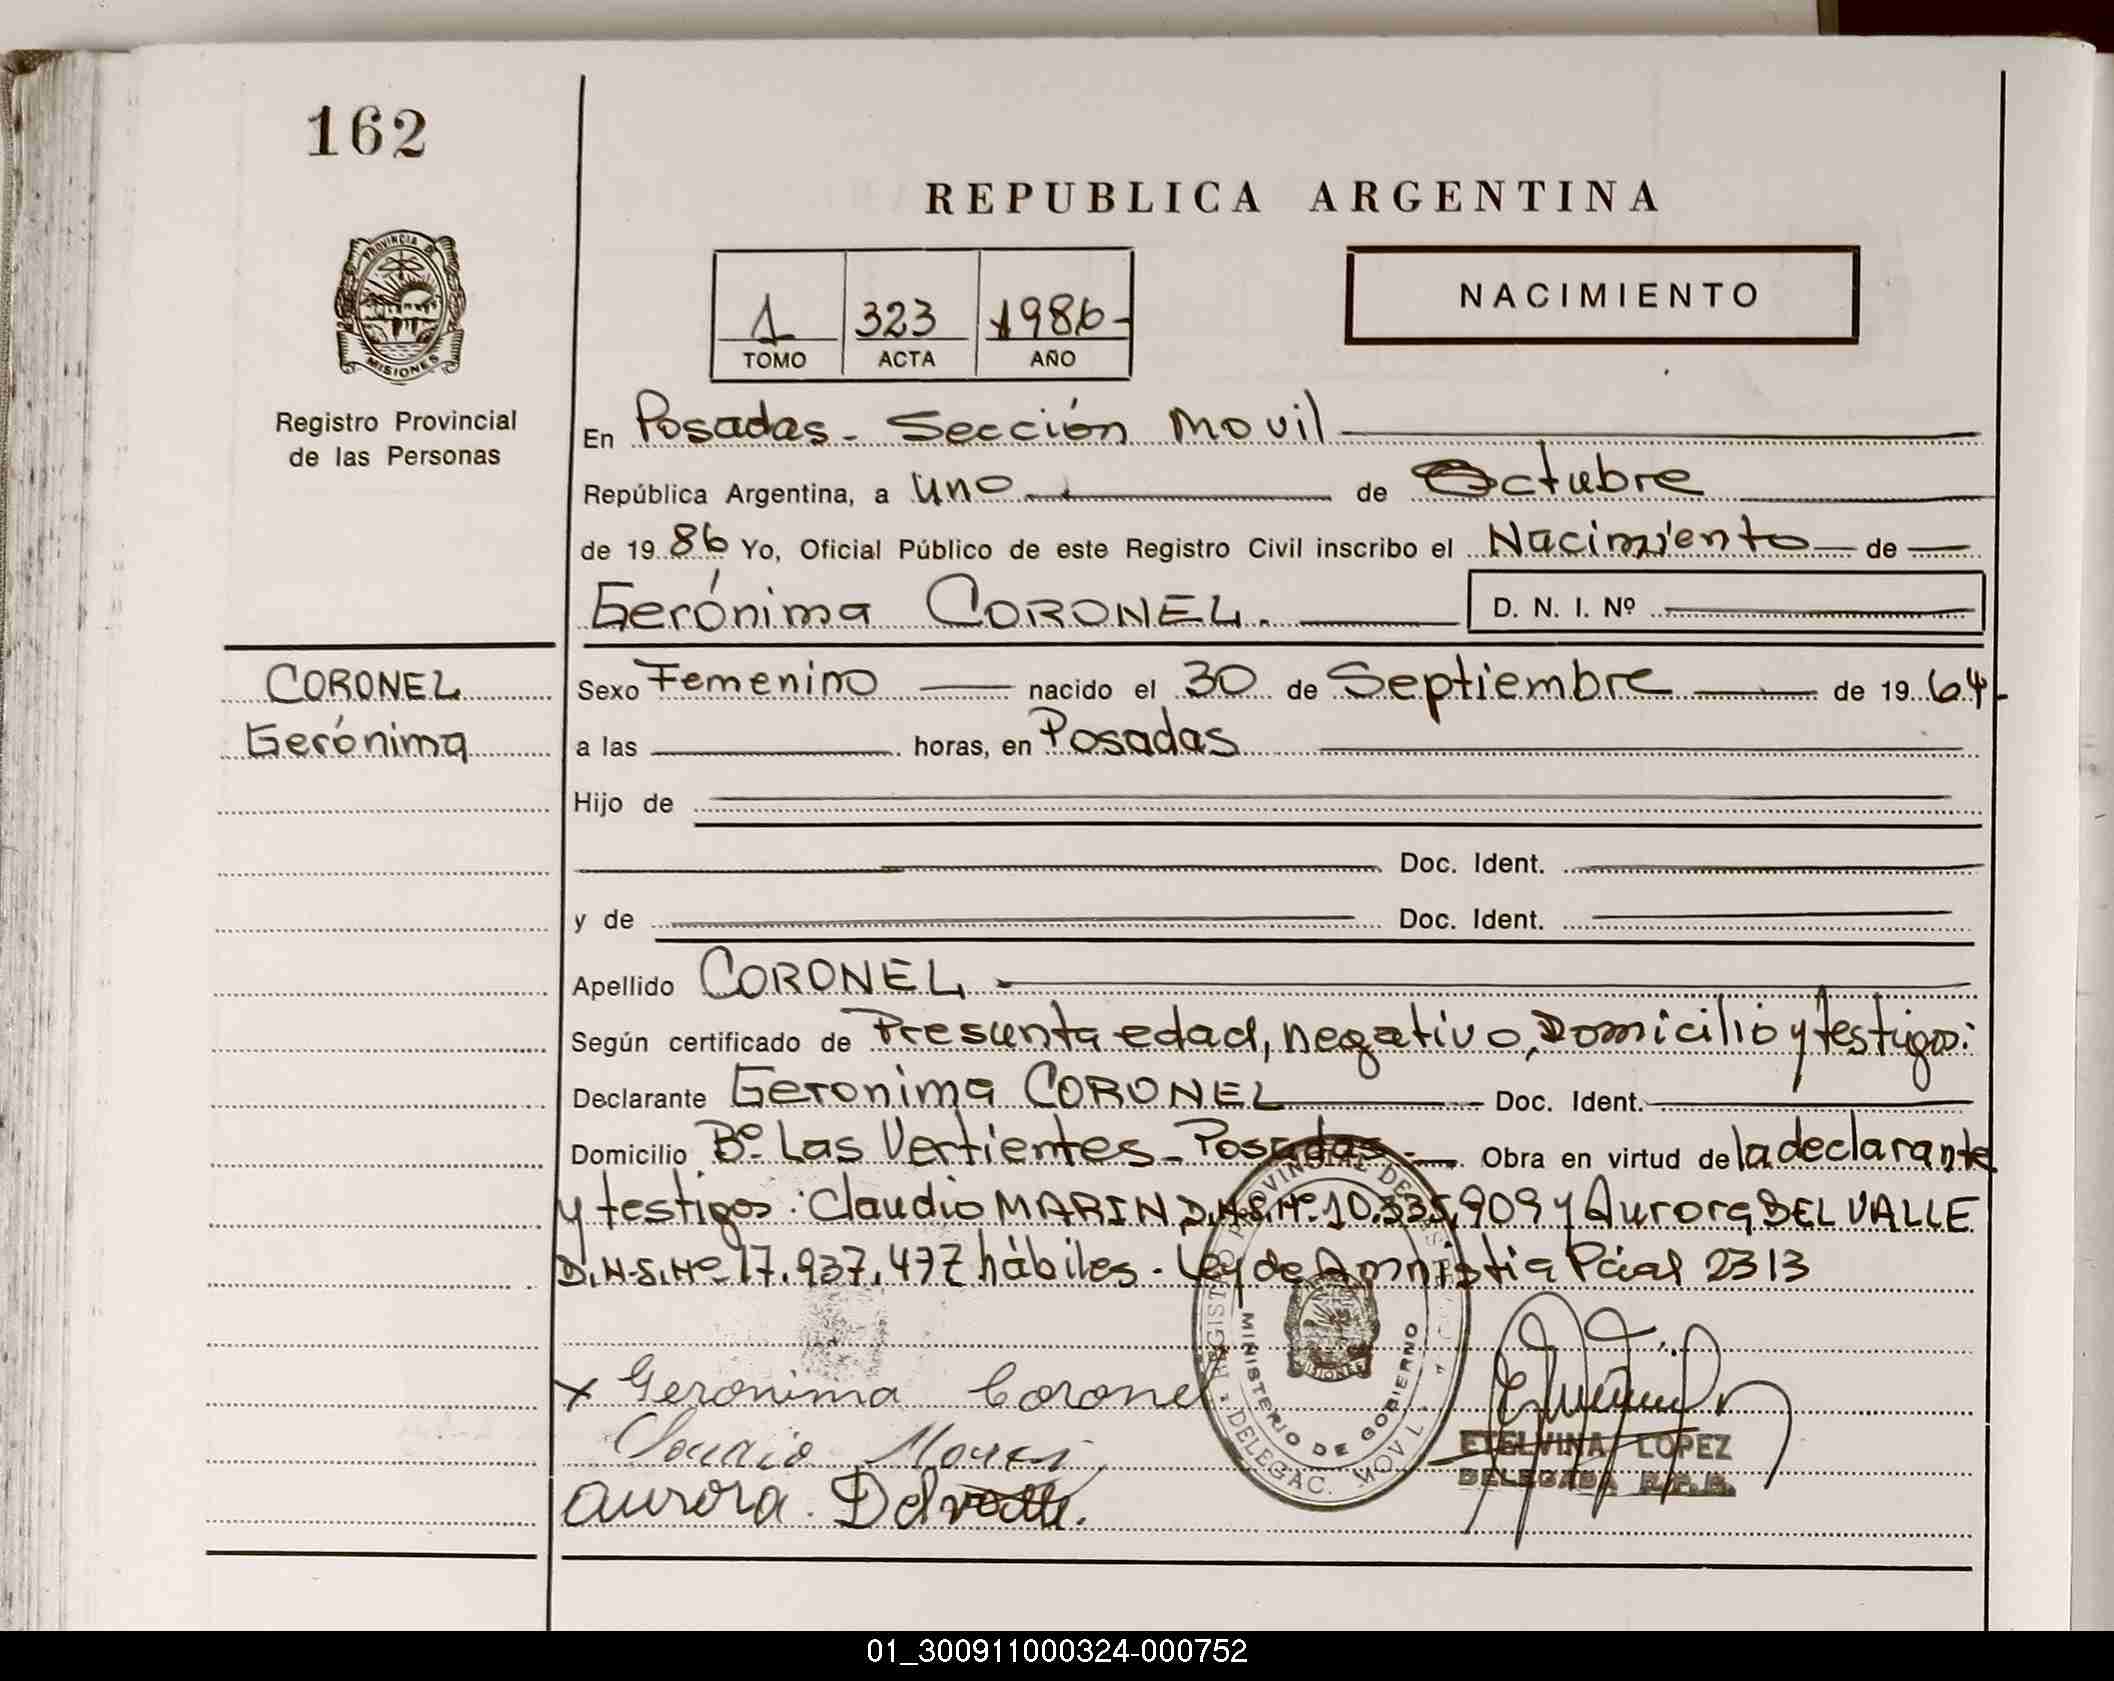 162
REPUBLICA ARGENTINA
NACIMIENTO
1 323 1986-
TOMO ACTA AÑO
PROVINCIA DE
MISIONES
Registro Provincial
de las Personas
En Posadas - Sección Movil
República Argentina, a uno de Octubre
de 1986 Yo, Oficial Público de este Registro Civil inscribo el Nacimiento de
Gerónima CORONEL. D. N. I. Nº
CORONEL
Gerónima
Sexo Femenino nacido el 30 de Septiembre de 1964-
a las horas, en Posadas
Hijo de
Doc. Ident.
y de Doc. Ident.
Apellido CORONEL
Según certificado de Presunta edad, negativo, Domicilio y testigos:
Declarante Geronima CORONEL Doc. Ident.
Domicilio Bº Las Vertientes - Posadas - Obra en virtud de la declarante
y testigos: Claudio MARIN D.N.I.Nº 10.335.909 y Aurora DEL VALLE
D.N.I.Nº 17.937.477 hábiles - Ley de Amnistia Pcial 2313
x Geronima Coronel
Aurora. Del valle.
REGISTRO PROVINCIAL DE
MINISTERIO DE GOBIERNO
DELEGAC. MOVL
ETELVINA LOPEZ
DELEGADA R.P.P.
01_300911000324-000752